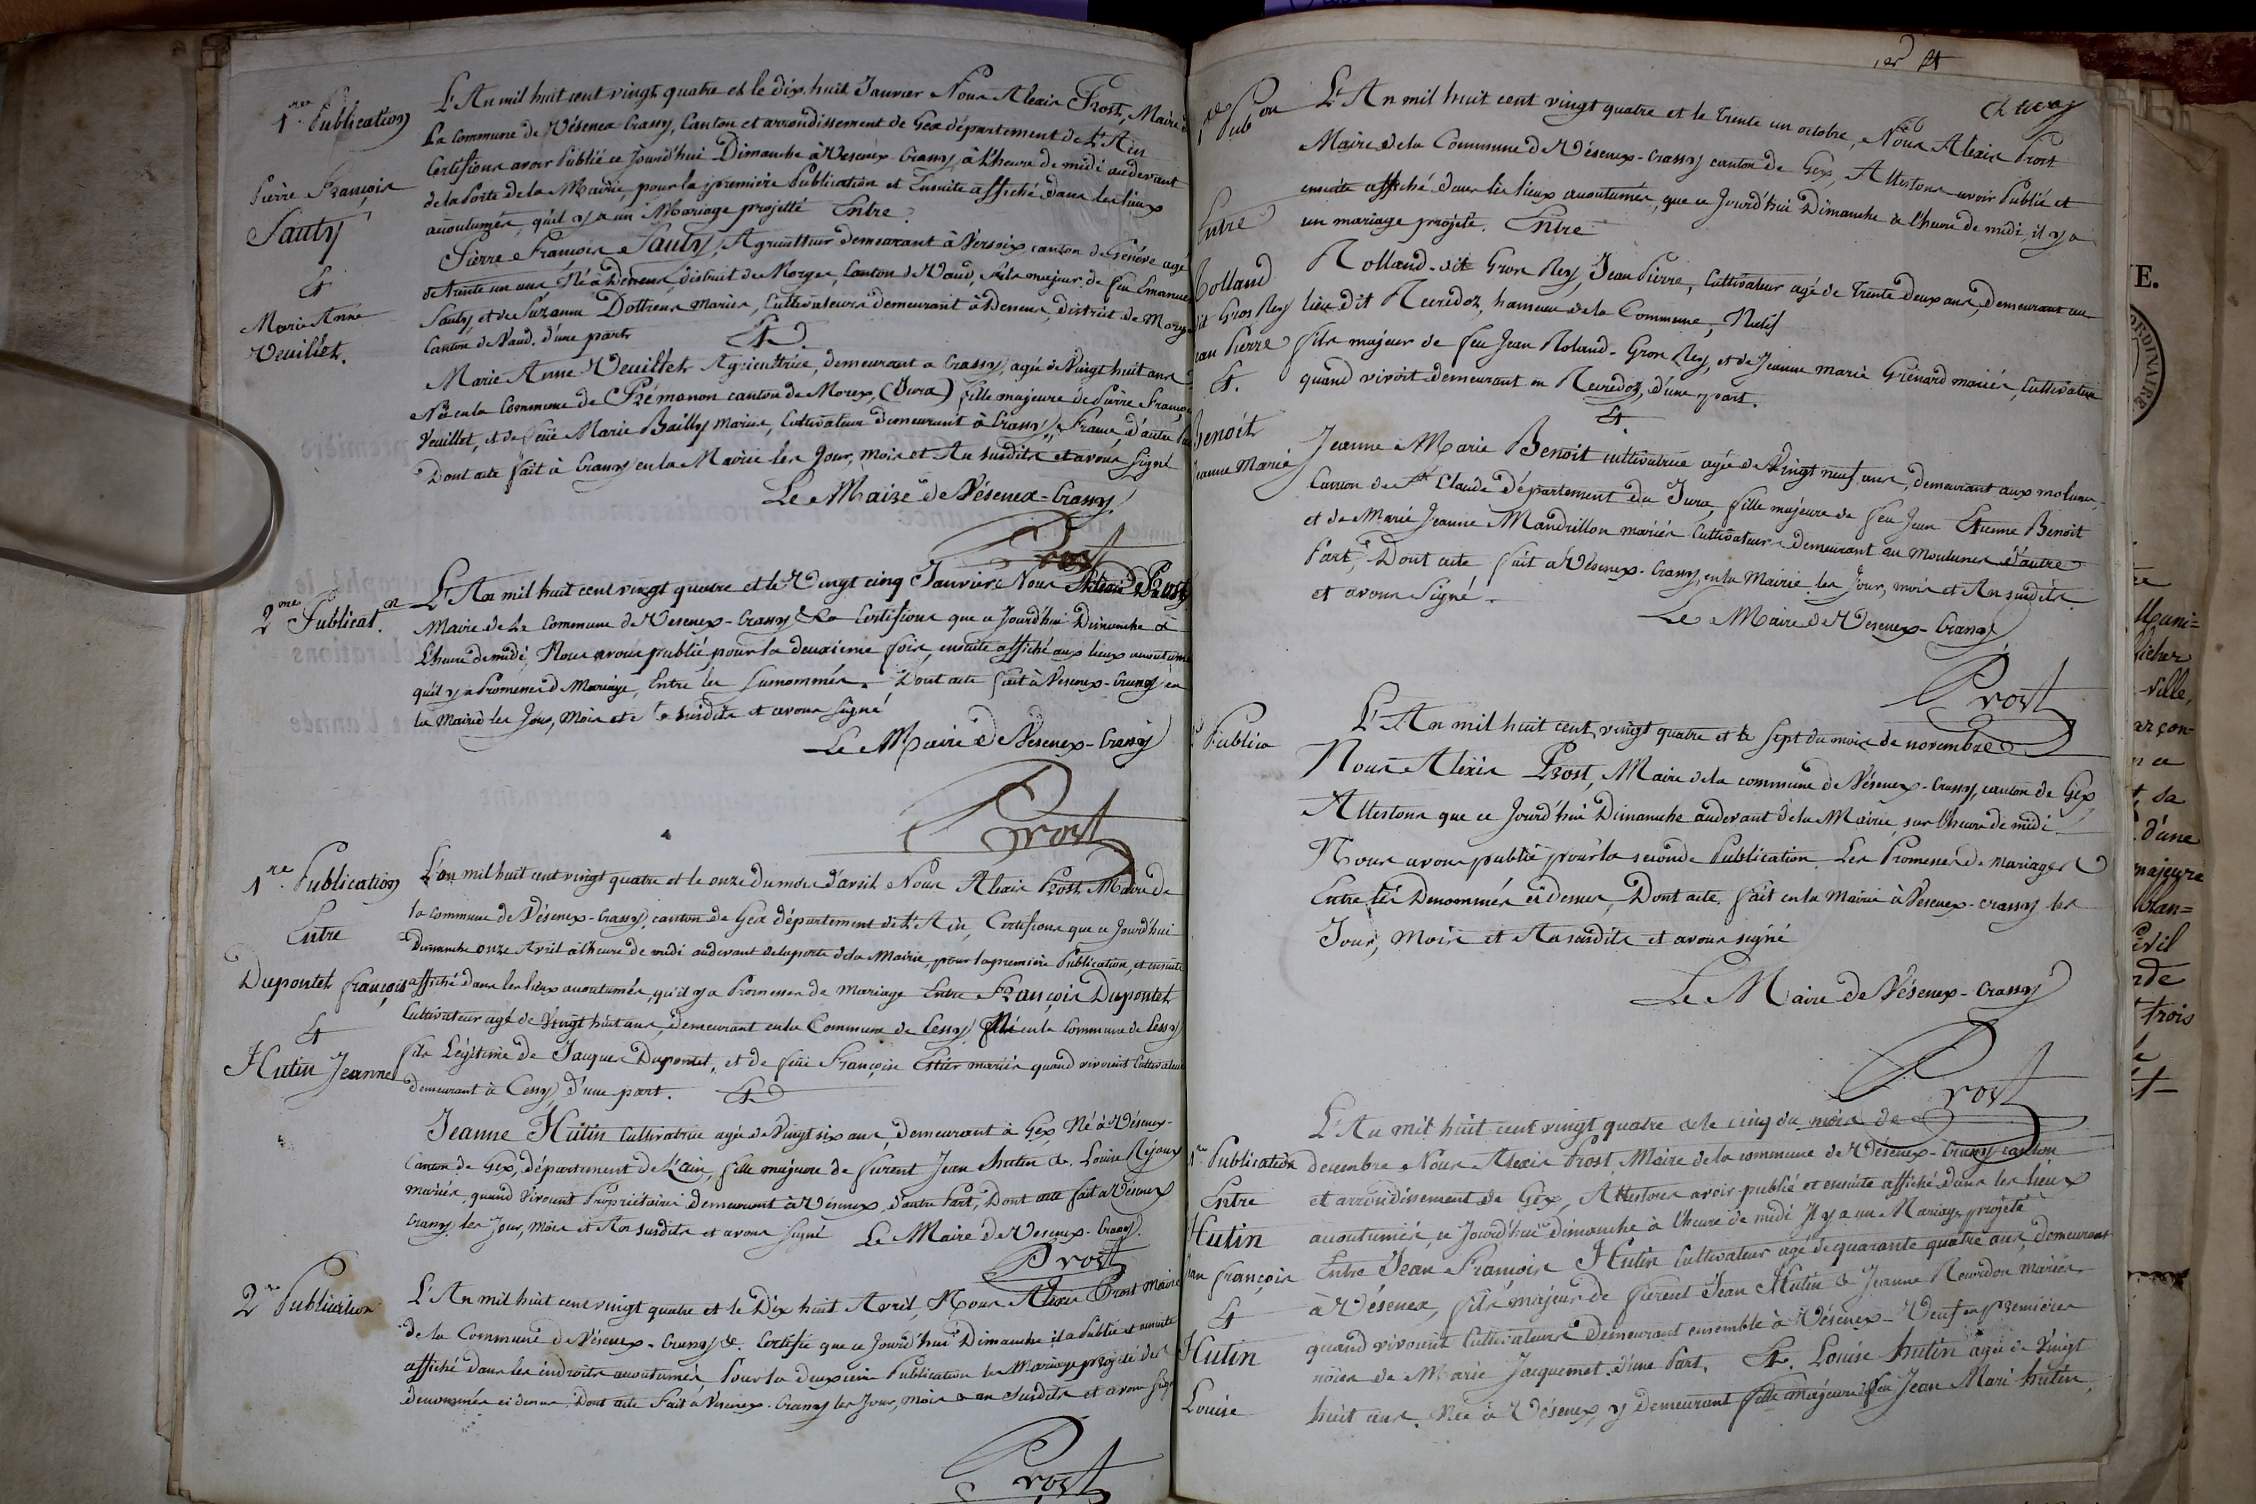 1re Publication
Pierre François
Sauty
&
Marie Anne
Veuillet.
L'An mil huit cent vingt quatre et le dix huit Janvier Nous Alexis Prost, Maire
La Commune de Vésenex Crassy, Canton et arrondissement de Gex département de L'Ain
Certifions avoir Publié ce Jourd'hui Dimanche à Vesenex-Crassy à L'heure de midi au devant
de la Porte de la Mairie, pour la première Publication et Ensuite affiché dans les lieux
acoutumés, qu'il y a un Mariage projetté Entre
Pierre François Sauty, Agriculteur demeurant à Versoix canton de Genève agé
de trente un ans, Né à Denens, district de Morges, Canton de Vaud, fils majeur de feu Emanuel
Sauty, et de Suzanne Dottrens mariés, Cultivateurs demeurant à Denens, district de Morges
Canton de Vaud, d'une part
&
Marie Anne Veuillet Agricultrice, demeurant a Crassy, agée de Vingt huit ans
Née en la Commune de Prémanon canton de Morez, (Jura) fille majeure de Pierre François
Veuillet, et de feüe Marie Bailly mariés, Cultivateur demeurant à Crassy, France, d'autre Part
Dont acte fait à Crassy en la Mairie les Jour, mois et An susdits et avons signé
Le Maire de Vésenex-Crassy
Prost
2me Publicat.on
L'An mil huit cent vingt quatre et le Vingt cinq Janvier Nous Alexis Prost
Maire de La Commune de Vesenex-Crassy &ca Certifions que ce Jourd'hui Dimanche à
L'heure de midi, Nous avons publié pour la deuxième fois, ensuite affiché aux lieux acoutumés
qu'il y a Promesses de Mariage, Entre les surnommés. Dont acte fait à Vesenex-Crassy en
la Mairie les Jour, Mois et susdits et avons signé
Le Maire de Vesenex-Crassy
Prost
1re Publication
Entre
Dupontet François
&
Hutin Jeanne
L'an mil huit cent vingt quatre et le onze du mois d'avril Nous Alexis Prost Maire de
la commune de Vésenex-Crassy, canton de Gex département de L'Ain, Certifions que ce Jourd'hui
Dimanche onze Avril à l'heure de midi au devant de la porte de la Mairie, pour la première Publication, et ensuite
affiché dans les lieux acoutumés, qu'il y a Promesses de Mariage Entre François Dupontet
Cultivateur agé de Vingt huit ans, demeurant en la Commune de Cessy Né en la Commune de Cessy
fils Légitime de Jacques Dupontet, et de feüe Françoise Estier mariés quand vivoient Cultivateur
demeurant à Cessy, d'une part. &
Jeanne Hutin Cultivatrice agée de Vingt six ans, demeurant à Gex Né à Vésenex-
Canton de Gex, département de L'ain, fille majeure de furent Jean Hutin & Louise Réjoux
mariés, quand vivoient Propriétaires demeurant à Vésenex, d'autre Part, Dont acte fait à Vésenex
Crassy les Jour, Mois et An susdits et avons signé Le Maire de Vesenex-Crassy.
Prost
2me Publication
L'An mil huit cent vingt quatre et le Dix huit Avril, Nous Alexis Prost Maire
de la Commune de Vésenex-Crassy &. Certifie que ce Jourd'hui Dimanche il a Publié et ensuite
affiché dans les endroits acoutumés Pour la deuxième Publication les Mariage projetté des
denommés ci dessus Dont acte Fait à Vesenex-Crassy les Jour, mois & an Susdits et avons signé
Prost
1re Pub on
Entre
Rolland
dit Gros Rey
Jean Pierre
&.
Benoit
Jeanne Marie
L'An mil huit cent vingt quatre et le Trente un octobre, Nous Alexis Prost
Maire de la Commune de Vésenex-Crassy canton de Gex, Attestons avoir Publié et
ensuite affiché dans les lieux acoutumés, que ce Jourd'hui Dimanche à l'heure de midi, il y a
un mariage projeté. Entre
Rolland-dit Gros Rey, Jean Pierre, Cultivateur agé de Trente Deux ans, Demeurant au
lieu dit Recredoz, hameau de la Commune, Natif
fils majeur de feu Jean Roland-Gros Rey, et de Jeanne marie Grenard mariés, Cultivateur
quand vivoit demeurant en Recredoz, d'une part.
&
Jeanne Marie Benoit cultivatrice agée de Vingt neuf ans, demeurant aux molunes,
Canton de St Claude Département du Jura, fille majeure de feu Jean Etienne Benoit
et de Marie Jeanne Mandrillon mariés Cultivateurs demeurant au Moulunes d'autre
Part, Dont acte fait à Vésenex-Crassy, en la Mairie les Jour, mois et An susdits
et avons signé.
Le Maire de Vesenex-Crassy
Prost
Publica
L'An mil huit cent vingt quatre et le Sept du mois de novembre
Nous Alexis Prost, Maire de la commune de Vésenex-Crassy, canton de Gex
Attestons que ce Jourd'hui Dimanche au devant de la Mairie, sur l'heure de midi
Nous avons publié pour la seconde Publication Les Promesses de mariages
Entre les Denommés ci dessus, Dont acte fait en la Mairie à Vesenex-crassy les
Jour, Mois et An susdits et avons signé
Le Maire de Vésenex-Crassy
Prost
1re Publication
Entre
Hutin
Jean François
&
Hutin
Louise
L'An mil huit cent vingt quatre & le cinq du mois de
decembre Nous Alexis Prost Maire de la commune de Vésenex-Crassy canton
et arrondissement de Gex, Attestons avoir publié et ensuite affiché dans les lieux
acoutumés, ce Jourd'hui dimanche à l'heure de midi Il y a un Mariage projeté
Entre Jean François Hutin Cultivateur agé de quarante quatre ans, demeurant
à Vésenex, fils majeur de furent Jean Hutin & Jeanne Rourdon mariés
quand vivoient Cultivateurs demeurant ensemble à Vésenex-Veuf en Premières
nôces de Marie Jacquemet d'une Part, &. Louise hutin agée de Vingt
huit ans, Née à Vésenex, y demeurant fille majeure de feu Jean Mari hutin,